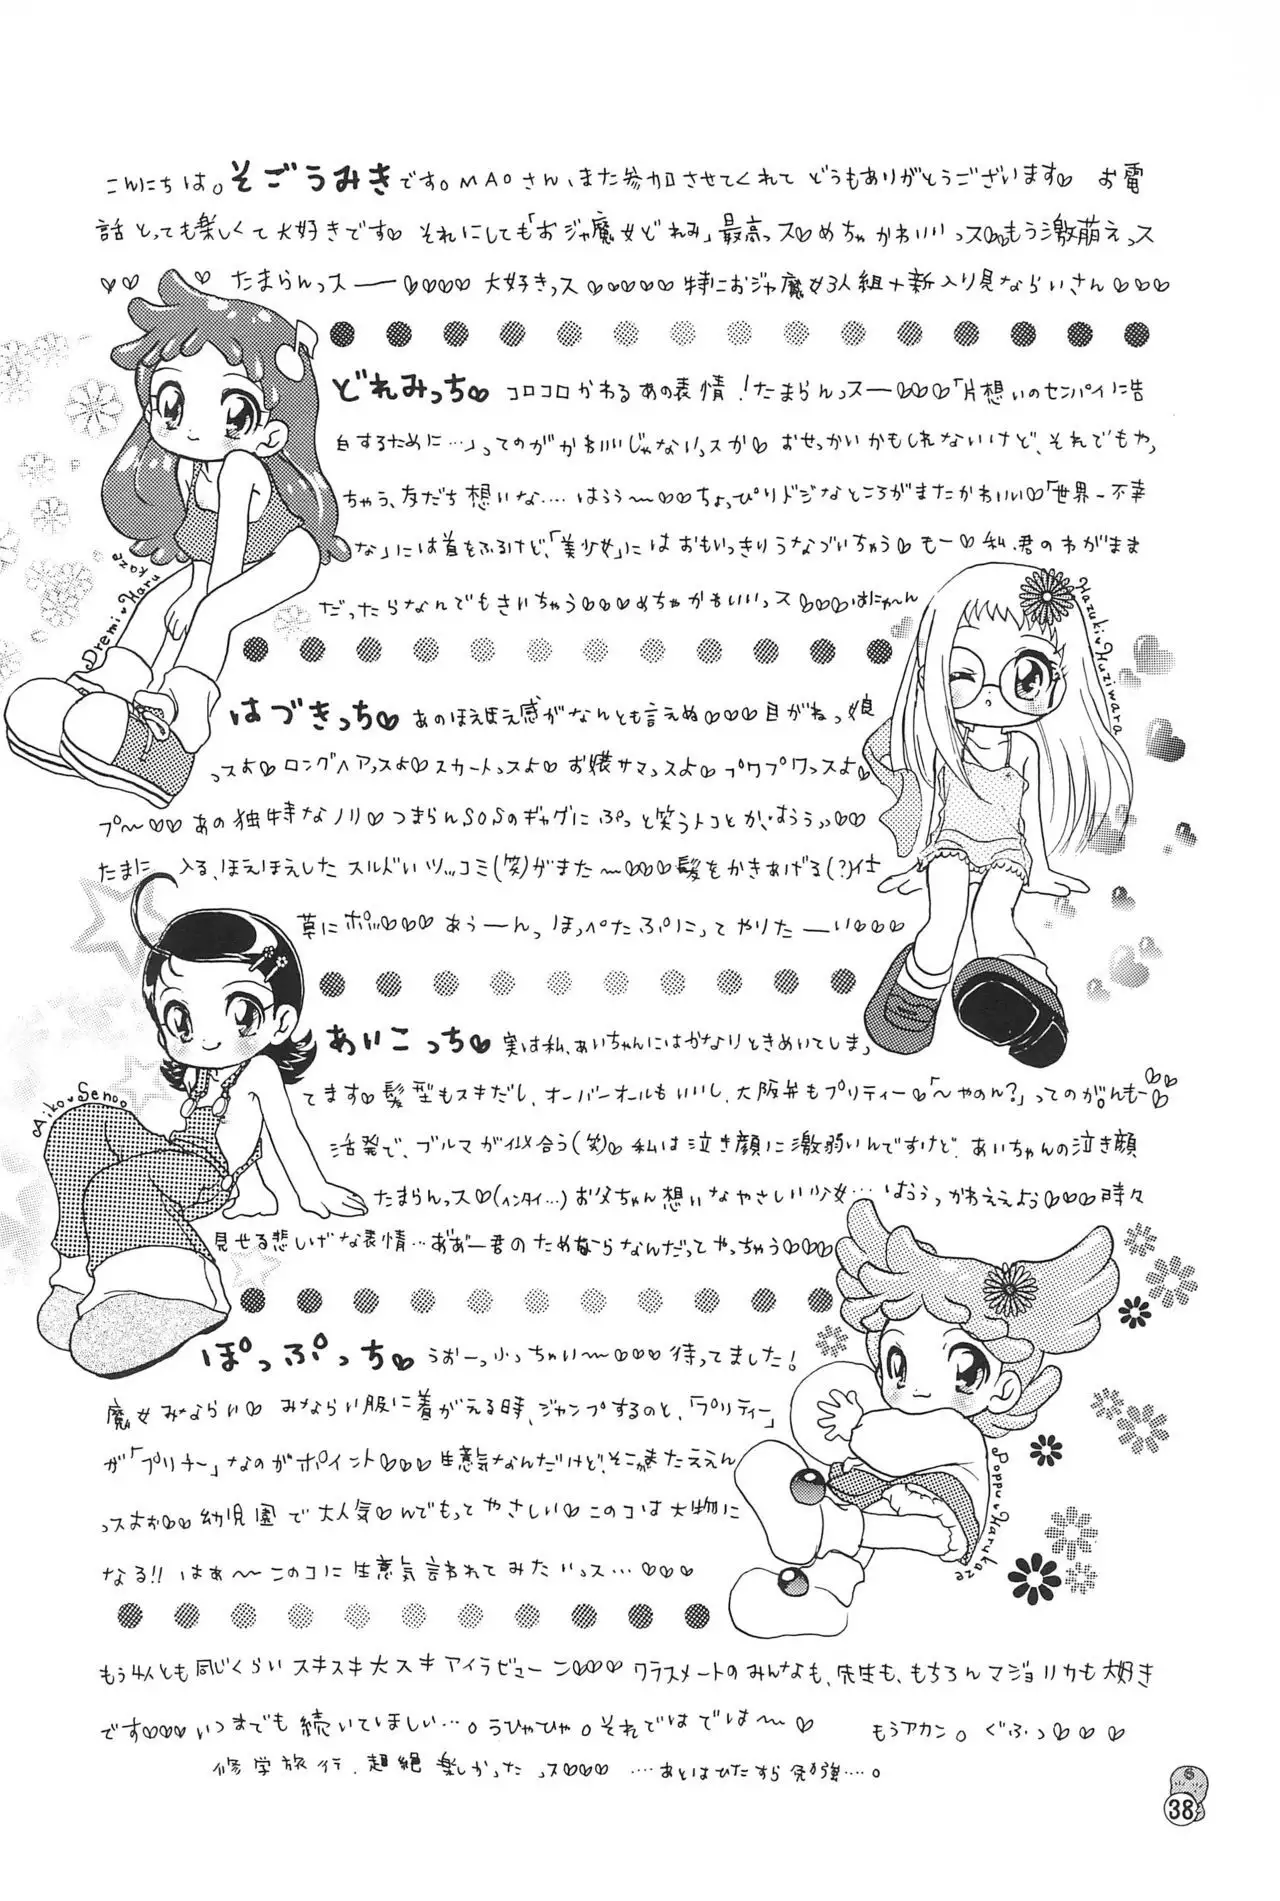 こんにちは。そごうみきです。MAOさん、また参加させてくれて どうもありがとうございます♡ お電
話とっても楽しくて大好きです♡ それにしても「おジャ魔女どれみ」最高っス♡めちゃかわいいっス♡♡もう激萌えっス
♡♡ ♡ たまらんっスー♡♡♡♡ 大好きっス♡♡♡♡♡特におジャ魔女3人組+新入り見ならいさん♡♡♡
どれみっち♡ コロコロかわるあの表情!たまらんっスー♡♡♡「片想いのセンパイに告
白するために…」ってのがかわいいじゃないっスか♡ おせっかいかもしれないけど、それでもやっ
ちゃう、友だち想いな…. はうう〜♡♡ちょっぴりドジなところがまたかわいい♡「世界一不幸
な」には首をふるけど、「美少女」にはおもいっきりうなづいちゃう♡もー♡私、君のわがまま
だったらなんでもきいちゃう♡♡♡めちゃかわいいっス♡♡♡はにゃ〜ん
Dremi♥Harukaze
Hazuki♥Huziwara
はづきっち♡ あのほえほえ感がなんとも言えぬ♡♡♡目がねっ娘
っスよ♡ロングヘアっスよ♡スカートっスよ♡お嬢サマっスよ♡プワプワっスよ♡
プ〜♡♡あの独特なノリ♡つまらんSOSのギャグにぷっと笑うトコとか、はううっ♡♡
たまに入る、ほえほえした スルドいツッコミ(笑)がまた〜♡♡♡髪をかきあげる(?)仕
草にポッ♡♡♡ あぅーんっ ほっぺたぷにってやりたーい♡♡♡
Aiko♥Senoo
あいこっち♡ 実は私、あいちゃんにはかなりときめいてしまっ
てます♡髪型もスキだし、オーバーオールもいいし、大阪弁もプリティー♡「〜やのん?」ってのがんもー♡♡♡
活発で、ブルマが似合う(笑)♡私は泣き顔に激弱いんですけど、あいちゃんの泣き顔
たまらんっス♡(ヘンタイ…)お父ちゃん想いなやさしい少女… はううっかわええよう♡♡♡時々
見せる悲しげな表情…おおー君のためならなんだってやっちゃう♡♡♡
ぽっぷっち♡ うおーっ小っちゃい〜♡♡♡待ってました!
魔女みならい♡ みならい服に着がえる時、ジャンプするのと、「プリティー」
が「プリチー」なのがポイント♡♡♡生意気なんだけど、そこがまたええん
っスよお♡♡ 幼児園で大人気♡んでもってやさしい♡このコは大物に
なる!! はぁ〜このコに生意気言われてみたいっス…♡♡♡
Poppu♥Harukaze
もう4人とも同じくらいスキスキ大スキアイラビューン♡♡♡クラスメートのみんなも、先生も、もちろんマジョリカも大好き
です♡♡♡いつまでも続いてほしい…。うひゃひゃ。それではでは〜♡ もうアカン。ぐふっ♡♡♡
修学旅行、超絶楽しかったっス♡♡♡ ….あとはひたすら勉強….。
38